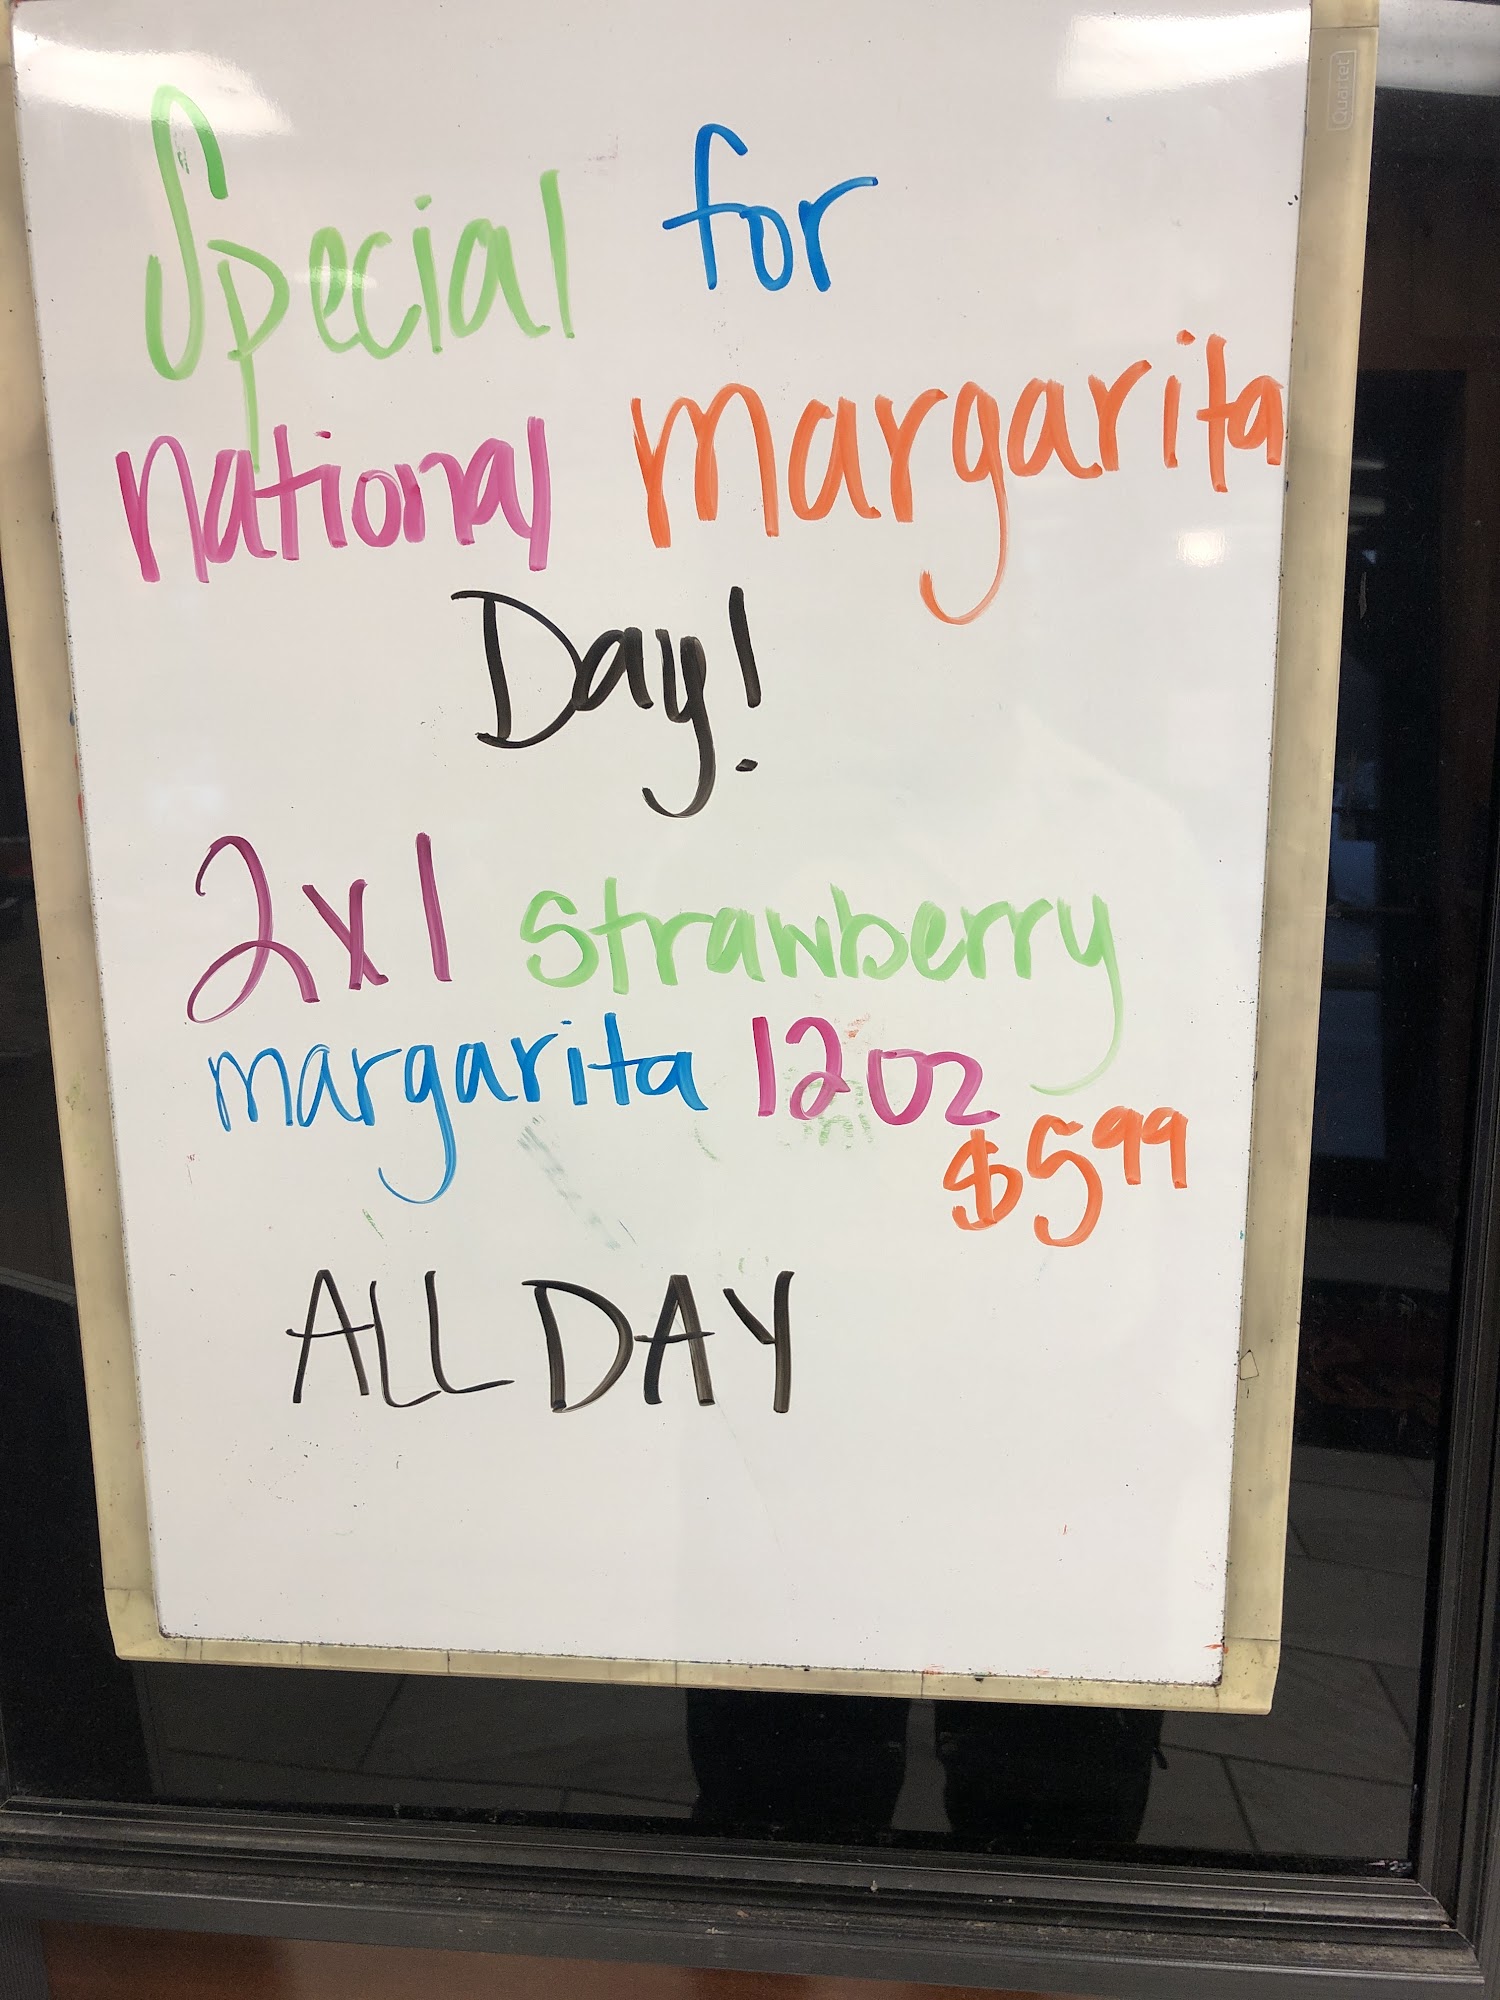 Special for
national margarita
Day!
2x1 strawberry
margarita 12oz
$599
ALL DAY
Quartet